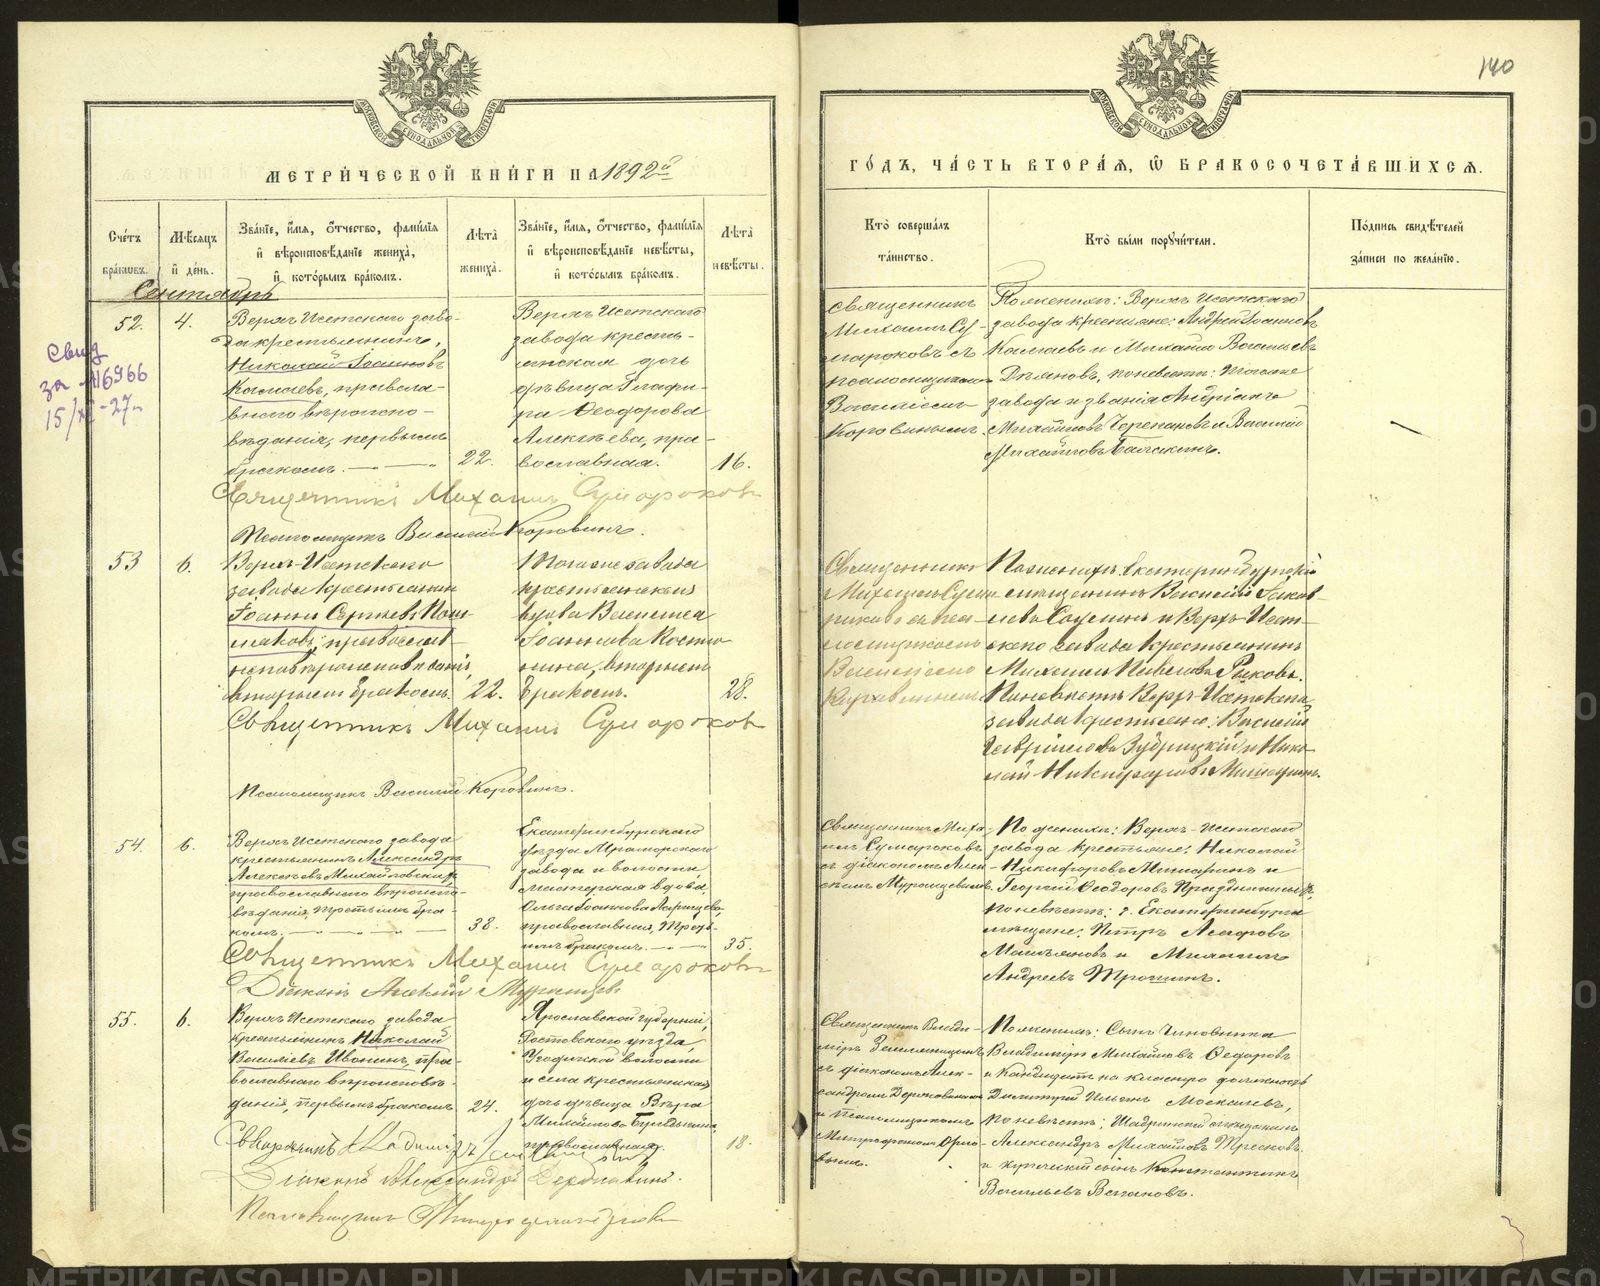 140
МЕТРИ́ЧЕСКОЙ КНИ́ГИ НА 1892й
ГО́ДЪ, ЧА́СТЬ ВТОРА́Я, Ѡ БРАКОСОЧЕТА́ВШИХСЯ.
Сче́тъ бра́ковъ.
Мѣ́сяцъ и҆ де́нь.
Зва́нїе, и҆́мя, ѻ҆́тчество, фами́лїя и҆ вѣроисповѣ́данїе жениха̀, и҆ кото́рымъ бра́комъ.
Лѣ́та жениха̀.
Зва́нїе, и҆́мя, ѻ҆́тчество, фами́лїя и҆ вѣроисповѣ́данїе невѣ́сты, и҆ кото́рымъ бра́комъ.
Лѣ́та невѣ́сты.
Кто̀ соверша́лъ та́инство.
Кто̀ бы́ли пору́чители.
По́дпись свидѣ́телей за́писи по жела́нїю.
Сентябрь
Свид
за №6966
15/XI-27
52. 4.
Верхъ Исетскаго заво-
да крестьянинъ,
Николай Іоанновъ
Камаевъ, правосла-
внаго вѣроиспо-
вѣданія, первымъ
бракомъ. 22.
Верхъ Исетскаго
завода кресть-
янская дочь
дѣвица Глафи-
ра Ѳеодорова
Алексѣева, пра-
вославная. 16.
Священникъ
Михаилъ Су-
мароковъ съ
псаломщикомъ
Василіемъ
Коровинымъ.
По женихѣ: Верхъ Исетскаго
завода крестьяне: Андрей Іоанновъ
Камаевъ и Михаилъ Васильевъ
Дѣяновъ, по невѣстѣ: того же
завода и званія Андріанъ
Михайловъ Черепановъ и Василій
Михайловъ
Священникъ Михаилъ Сумароковъ
Псаломщикъ Василій Коровинъ.
53 6.
Верхъ-Исетскаго
завода крестьянинъ
Іоаннъ Сергіевъ
православ-
наго вѣроисповѣданія,
вторымъ бракомъ. 22.
того же завода
крестьянская
вдова Васильева
Іоаннова
вторымъ
бракомъ. 28.
Священникъ
Михаилъ Сума-
роковъ съ пса-
ломщикомъ
Василіемъ
Коровинымъ
По женихѣ: Екатеринбургскій
мѣщанинъ Василій Іаков-
левъ и Верхъ-Исет-
скаго завода крестьянинъ
Михаилъ Павловъ Рыковъ.
По невѣстѣ Верхъ-Исетскаго
завода крестьяне: Василій
Гавріиловъ Зубрицкій и Нико-
лай Никифоровъ
Священникъ Михаилъ Сумароковъ
Псаломщикъ Василій Коровинъ.
54. 6.
Верхъ Исетскаго завода
крестьянинъ Александръ
Алексѣевъ Михайловскихъ
православнаго вѣроиспо-
вѣданія, третьимъ бра-
комъ. 38.
Екатеринбургскаго
уѣзда Мраморскаго
завода и волости
мастерская вдова,
Ольга Іоаннова
православная, треть-
имъ бракомъ. 35.
Священникъ Миха-
илъ Сумароковъ
съ діакономъ Алек-
сѣемъ
По женихѣ: Верхъ-Исетскаго
завода крестьяне: Николай
Никифоровъ и
Георгій Ѳеодоровъ
По невѣстѣ: г. Екатеринбурга
мѣщане: Петръ
и Михаилъ
Андреевъ Трошинъ.
Священникъ Михаилъ Сумароковъ
Діаконъ Алексій
55. 6.
Верхъ Исетскаго завода
крестьянинъ Николай
Василіевъ Ивонинъ, пра-
вославнаго вѣроисповѣ-
данія, первымъ бракомъ 24.
Ярославской губерніи,
Ростовскаго уѣзда,
Угодичской волости
и села крестьянская
дочь дѣвица Вѣра
Михайлова
православная. 18.
Священникъ Влади-
міръ Земляницынъ
съ діакономъ Алек-
сандромъ Державинымъ
и псаломщикомъ
По женихѣ: Сынъ чиновника
Владиміръ Михайловъ Ѳедоровъ
и Кандидатъ на классную должность
Дмитрій Ильинъ Москалевъ,
По невѣстѣ: Шадринскій мѣщанинъ
Александръ Михайловъ
и купеческій сынъ Константинъ
Васильевъ
Діаконъ Александръ Державинъ.